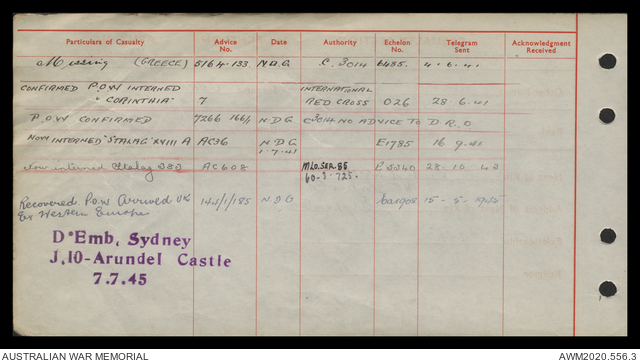 Particulars of Casualty Advice No. Date Authority Echelon No. Telegram Sent Acknowledgment Received
Missing (GREECE) 5164.133 N.D.G. C.3014 6485. 4.6.41
CONFIRMED P.O.W INTERNED INTERNATIONAL
"CORINTHIA" 7 RED CROSS 026 28.6.41
P.O.W CONFIRMED 7266 N D G C3014 NO ADVICE TO D.R.O
NOW INTERNED "STALAG" XVIII A AC36 N D G E1785 16 9.41
1.7.41
Now interned Stalag 383 AC608 28.10.43
Recovered P.O.W Arrived UK N D G 15-5-
Ex Western Europe
D'Emb, Sydney
J,10-Arundel Castle
7.7.45
AUSTRALIAN WAR MEMORIAL AWM2020.556.3